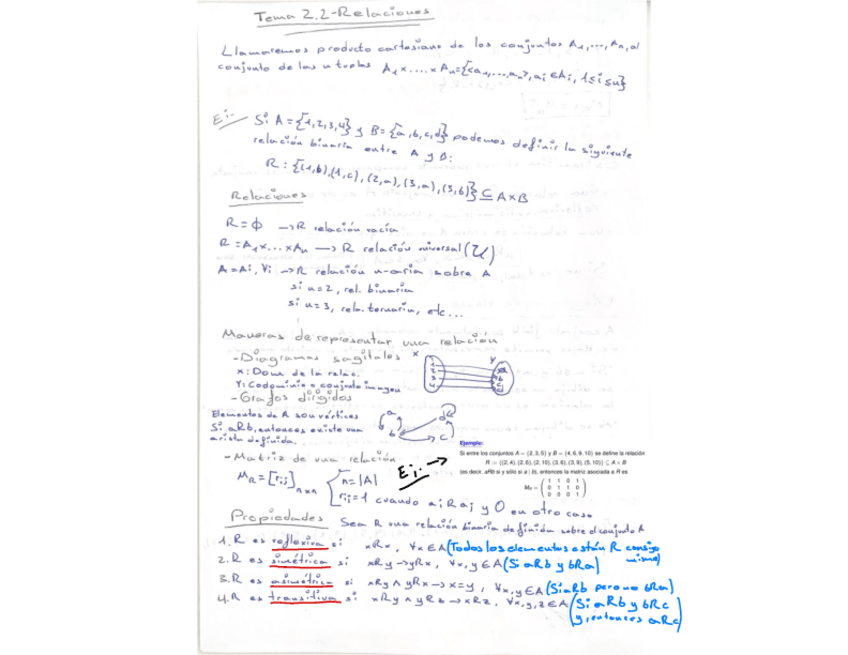 Tema 2.2-Relaciones
Llamaremos producto cartesiano de los conjuntos A₁,...,Aₙ, al
conjunto de las n tuplas A₁x....xAₙ={<a₁,...,aₙ>, aᵢ ∈Aᵢ, 1≤i≤n}
Ej:
Si A={1,2,3,4} y B={a,b,c,d} podemos definir la siguiente
relación binaria entre A y B:
R:{(1,b),(1,c),(2,a),(3,a),(3,b)}⊆AxB
Relaciones
R=∅ →R relación vacía
R=A₁x...xAₙ → R relación universal(U)
A=Aᵢ, ∀i →R relación n-aria sobre A
si n=2, rel. binaria
si n=3, rela. ternaria, etc...
Maneras de representar una relación
-Diagramas sagitales
X Y
X: Dom. de la relac.
Y: Codominio o conjunto imagen
1
2
3
4
a
b
c
d
-Grafos dirigidos
Elementos de A son vértices
Si aRb, entonces existe una
arista definida.
a
b
c
d
Ejemplo:
Si entre los conjuntos A = {2, 3, 5} y B = {4, 6, 9, 10} se define la relación
R := {(2, 4), (2, 6), (2, 10), (3, 6), (3, 9), (5, 10)} ⊂ A × B
(es decir, aRb si y sólo si a | b), entonces la matriz asociada a R es
M_R = ( 1 1 0 1
0 1 1 0
0 0 0 1 )
-Matriz de una relación
Ej: →
M_R=[rᵢⱼ]ₙₓₙ { n=|A|
rᵢⱼ=1 cuando aᵢRaⱼ y 0 en otro caso
Propiedades
Sea R una relación binaria definida sobre el conjunto A
1.R es reflexiva si xRx, ∀x∈A (Todos los elementos están R consigo mismo)
2.R es simétrica si xRy→yRx, ∀x,y∈A (Si aRb y bRa)
3.R es asimétrica si xRy∧yRx→x=y, ∀x,y∈A (Si aRb pero no bRa)
4.R es transitiva si xRy∧yRz→xRz, ∀x,y,z∈A (Si aRb y bRc
y, entonces aRc)